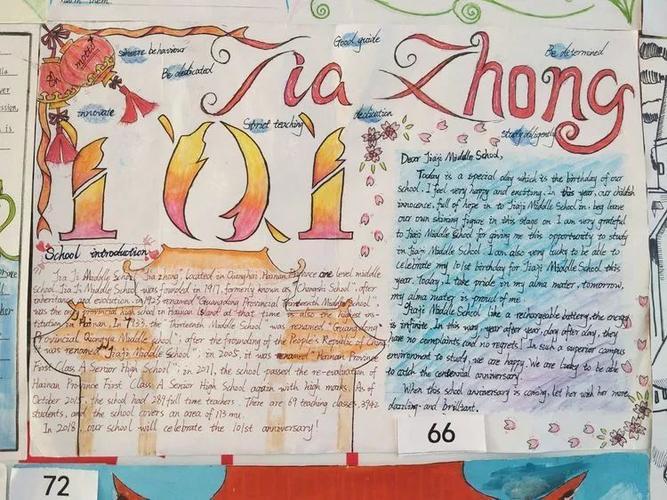 Jia Zhong
101
sincere behaviour
Be dedicated
Good guide
Be determined
innovate
Strict teaching
dedication
Study diligently
School introduction
Jia Ji Middle School "Jia zhong", located in Qionghai, Hainan Province one level middle
school. Jia Ji Middle School was founded in 1917, formerly known as "Qiongdong School". after
inheritance and evolution, in 1925 renamed "Guangdong Provincial Thirteenth Middle School".
was the only provincial high school in Hainan Island at that time is also the highest ins-
titution in Hainan. In 1935, the "Thirteenth Middle School" was renamed "Guangdong
Provincial Qiongya Middle school"; after the founding of the People's Republic of China
was renamed "Jiaji Middle School", in 2005, it was renamed "Hainan Province
First Class A Senior High School"; in 2011, the school passed the re-evaluation of
Hainan Province First Class A Senior High School again with high marks. As of
October 2015, the school had 289 full time teachers. There are 69 teaching classes, 3942
students, and the school covers an area of 113 mu.
In 2018, our school will celebrate the 101st anniversary!
Dear Jiaji Middle School,
Today is a special day which is the birthday of our
school. I feel very happy and exciting. In this year, our childish
innocence, full of hope in to Jiaji Middle School in, beg leave
our own shining figure in this stage on. I am very grateful
to Jiaji Middle School for giving me this opportunity to study
in Jiaji Middle School. I am also very lucky to be able to
celebrate my 101st birthday for Jiaji Middle School this
year. Today, I take pride in my alma mater, tomorrow,
my alma mater is proud of me.
Jiaji Middle School like a rechargeable battery, the energy
is infinite. In this way, year after year, day after day, they
have no complaints and no regrets! In such a superior campus
environment to study, we are happy. We are lucky to be able
to catch the centennial anniversary.
When this school anniversary is coming, let her with her more
dazzling and brilliant.
66
72